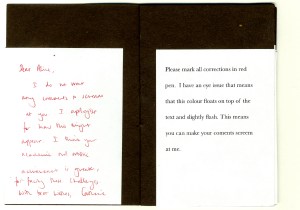 Dear
I do not want
any comments to scream
at you. I apologise
for how this might
appear. I think your
and
achievement is
for facing these challenges
with best wishes,
Please mark all corrections in red
pen. I have an eye issue that means
that this colour floats on top of the
text and slightly flash. This means
you can make your contents scream
at me.